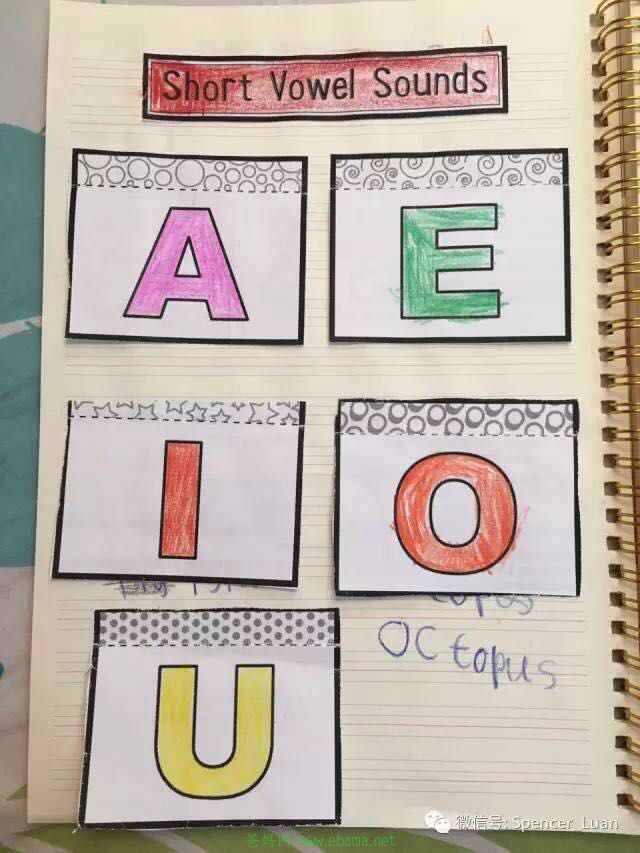 Short Vowel Sounds
A E
I O
OCtopus
U
微信号: Spencer_Luan
爸妈网 www.ebama.net